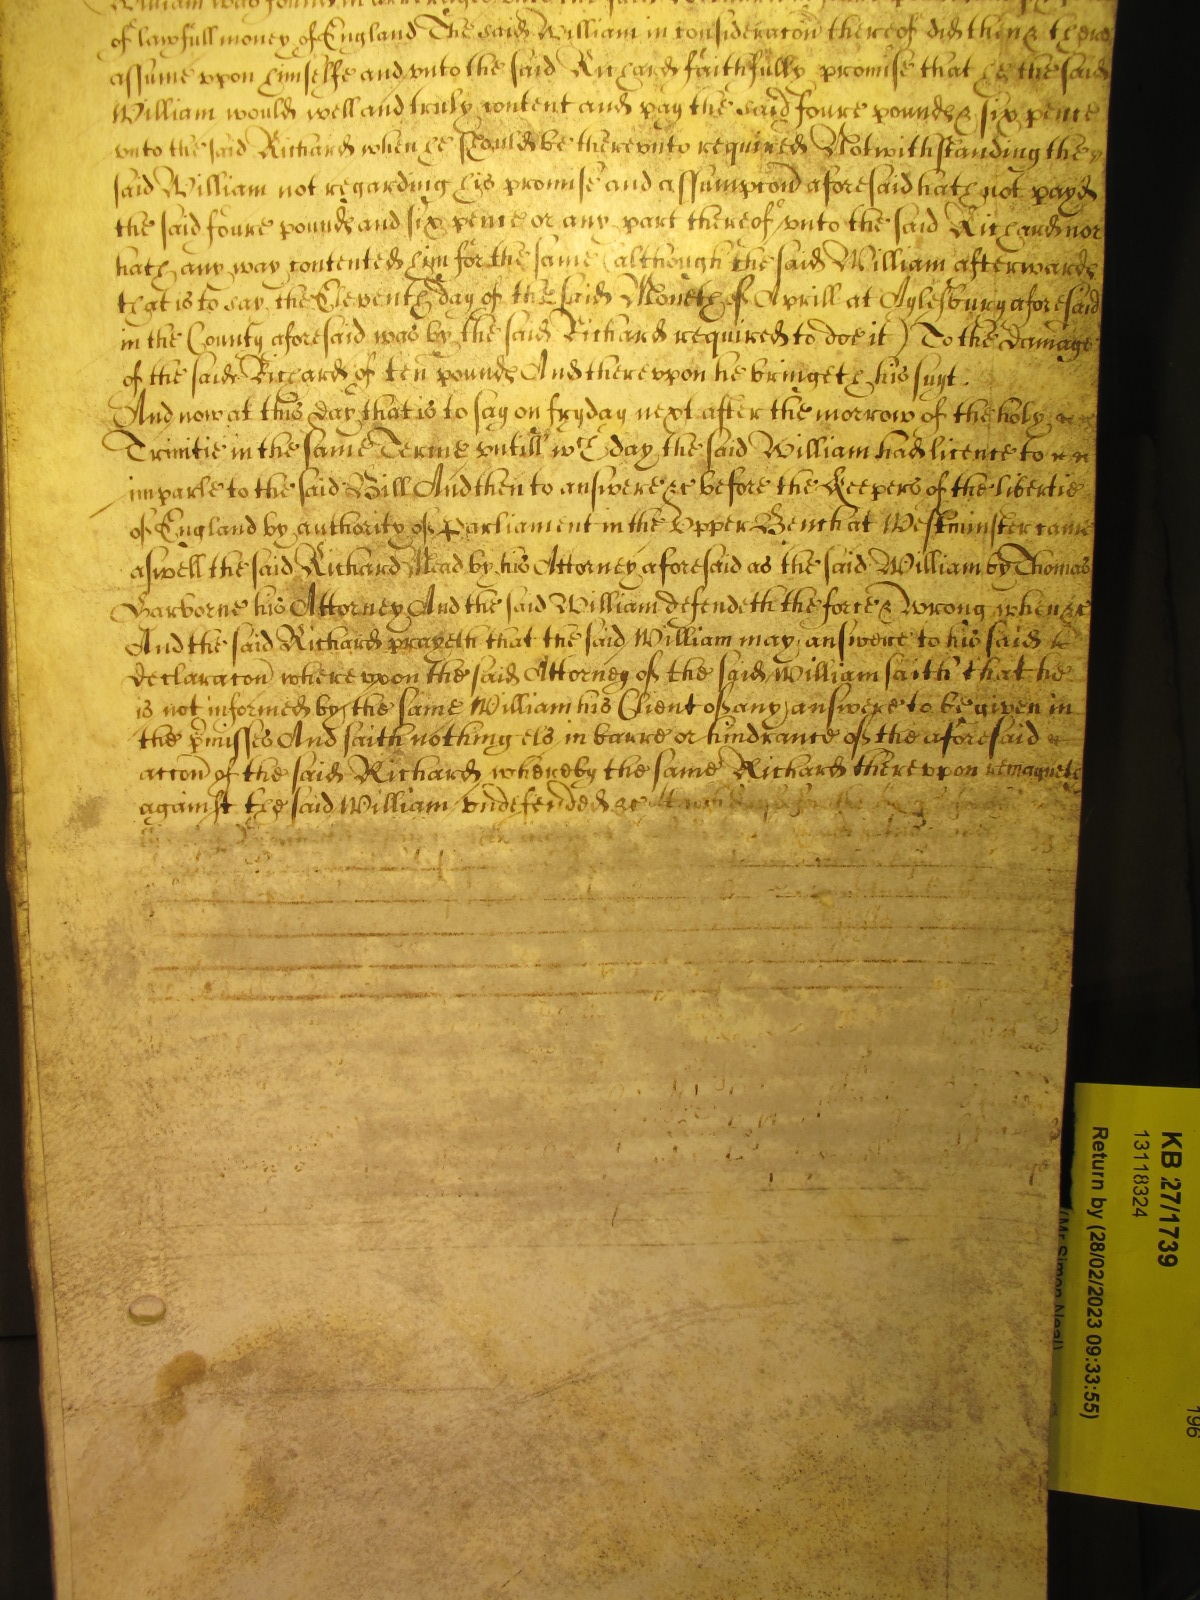 William was found in arrerages unto the said
of lawfull money of England The said William in consideracon thereof did then & there
assume vpon himselfe and vnto the said Richard faithfully promise that he the said
William would well and truly content and pay the said foure pounds & six pence
vnto the said Richard when he should be therevnto required Notwithstanding the
said William not regarding his promise and assumpcon aforesaid hath not payd
the said foure pounds and six pence or any part thereof vnto the said Richard nor
hath any way contented him for the same (although the said William afterwards
that is to say the Eleventh day of the said Moneth of Aprill at Aylesbury aforesaid
in the County aforesaid was by the said Richard required to doe it) To the damage
of the said Richard of ten pounds And therevpon he bringeth his suyt.
And now at this day that is to say on fryday next after the morrow of the holy
Trinitie in the same Terme vntill wch day the said William had licence to
imparle to the said Bill And then to answere &c before the Keepers of the libertie
of England by authority of Parliament in the Vpper Bench at Westminster came
aswell the said Richard Mead by his Attorney aforesaid as the said William by Thomas
Garborne his Attorney And the said William defendeth the force & wrong when &c
And the said Richard prayeth that the said William may answere to his said
declaracon wherevpon the said Attorney of the said William saith that he
is not informed by the same William his Client of any answere to be given in
the pmisses And saith nothing els in barre or hindrance of the aforesaid
accon of the said Richard whereby the same Richard therevpon remayneth
against the said William vndefended &c
KB 27/1739
13118324
Return by (28/02/2023 09:33:55)
(Mr Simon Neal)
196